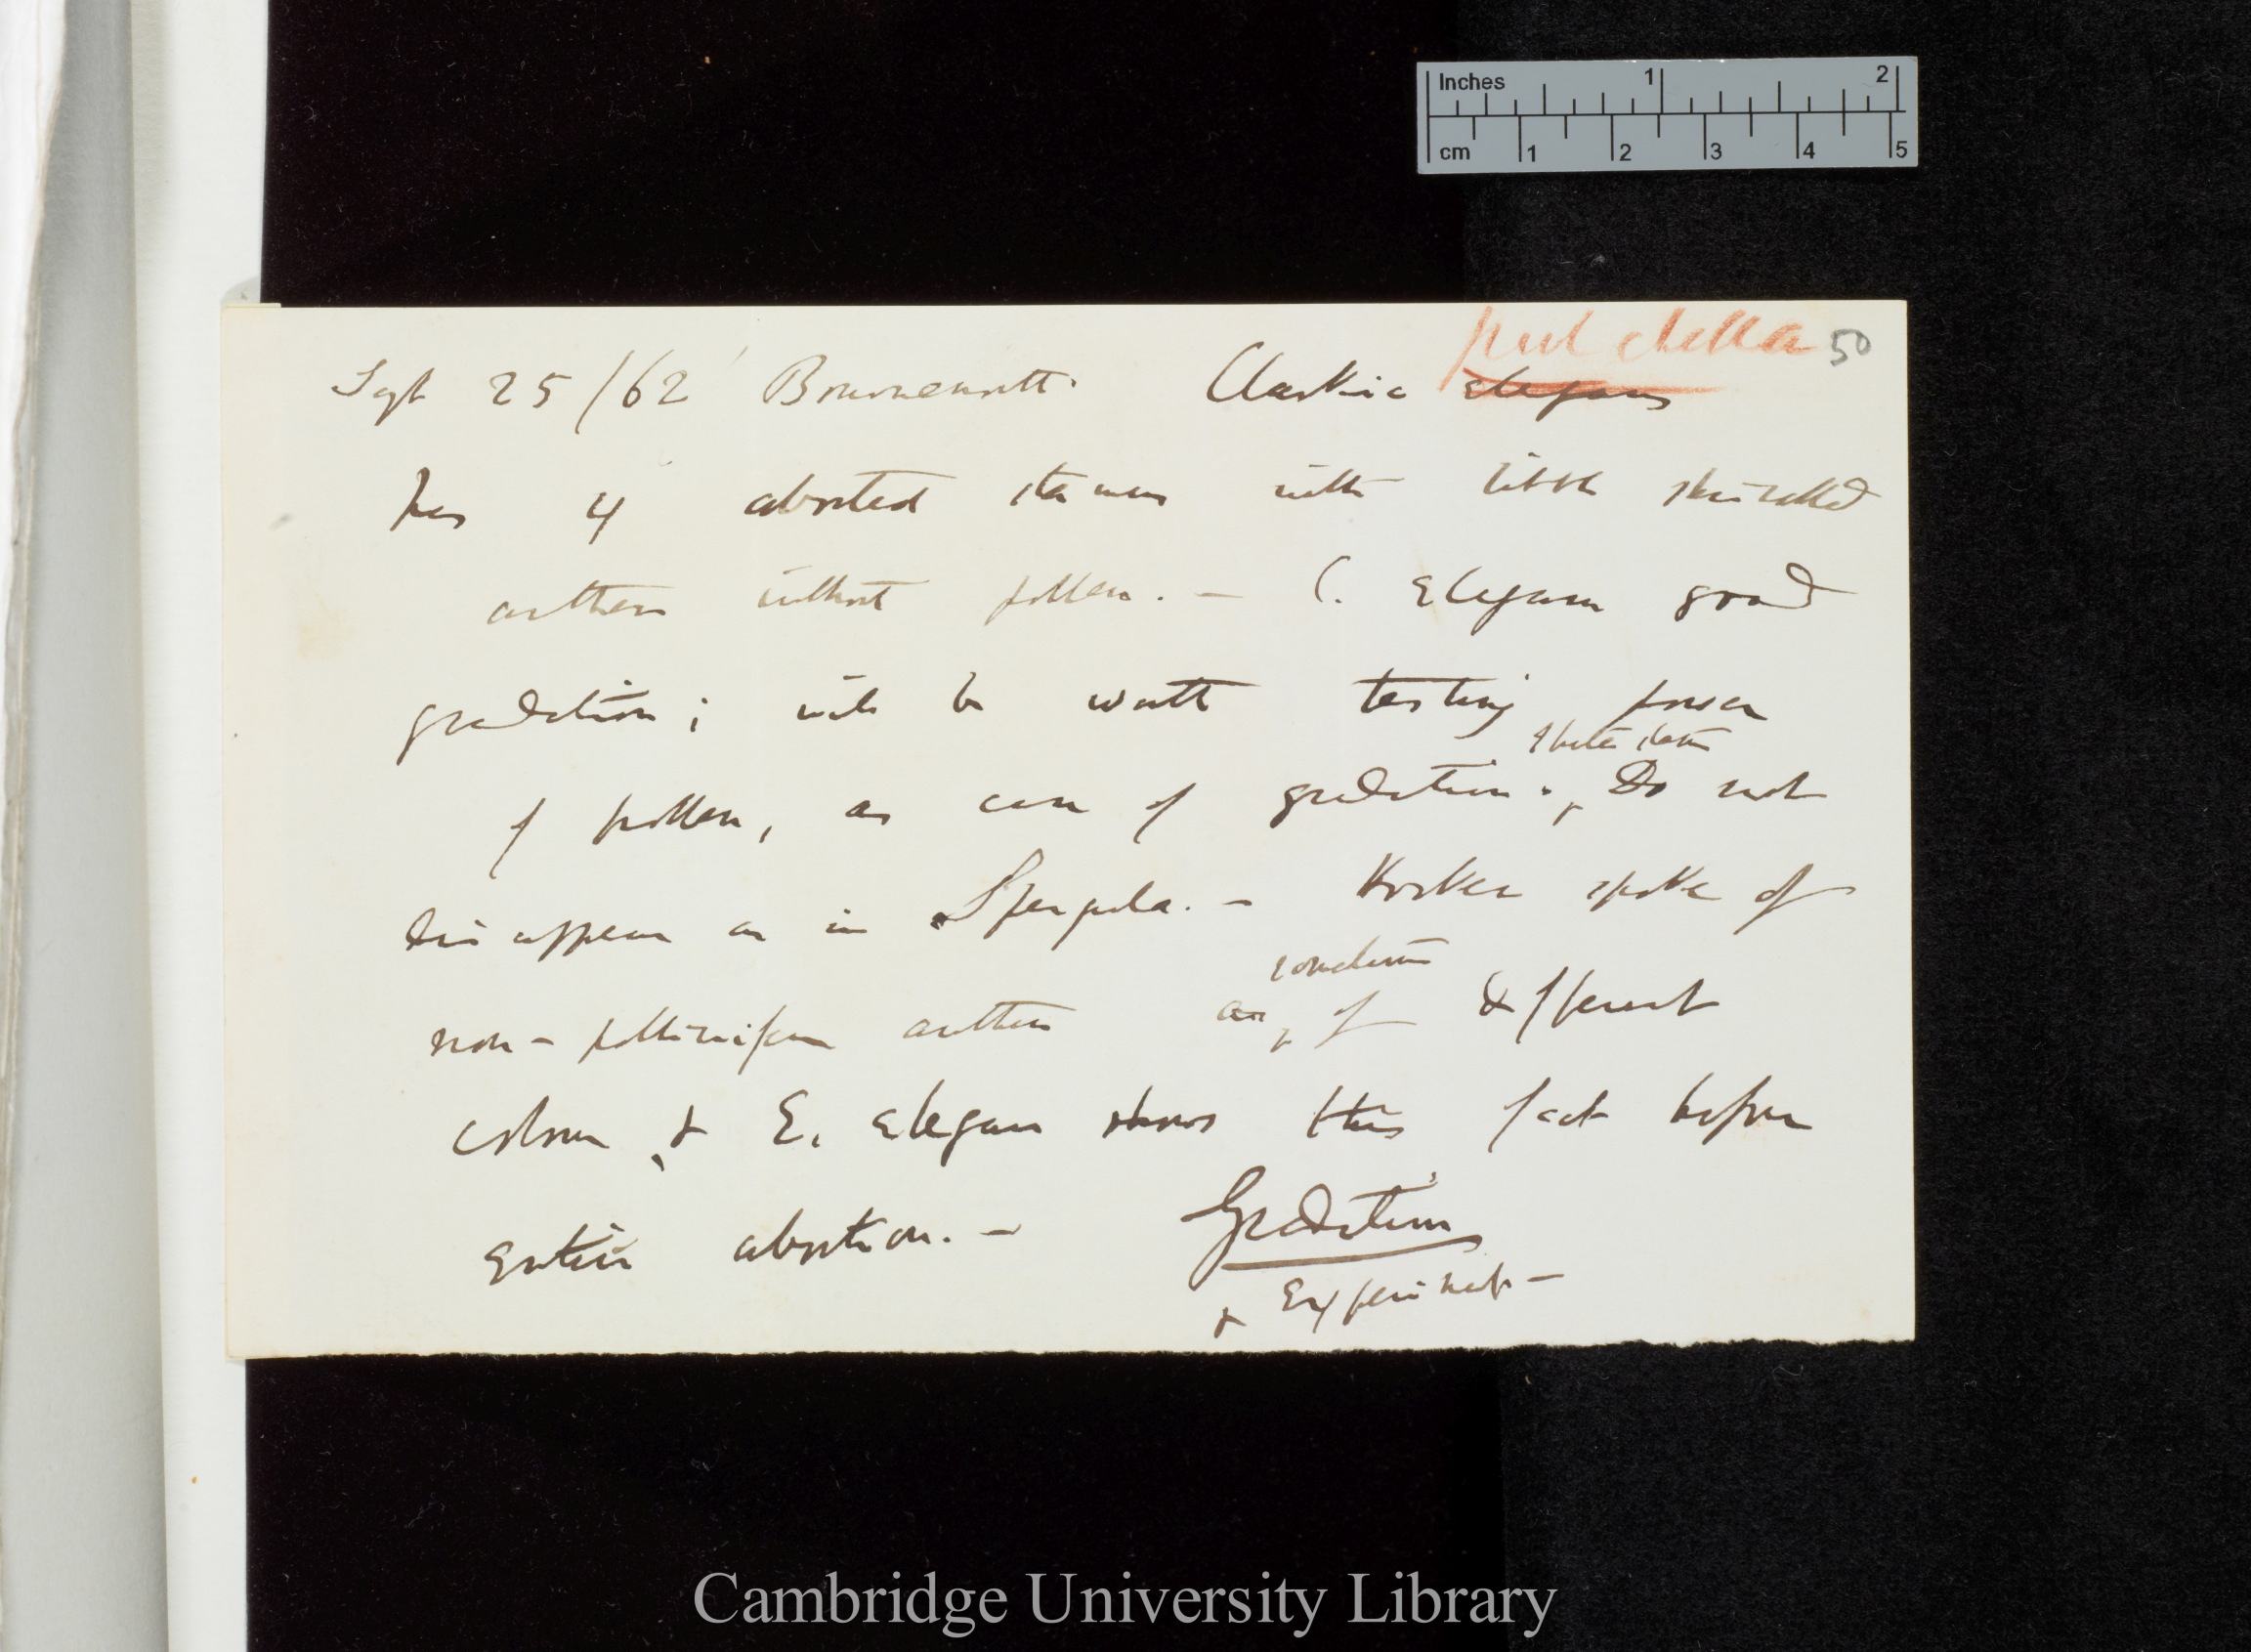 Inches 1 2
cm 1 2 3 4 5
pulchella 50
Sept 25/62 Bournemouth. Clarkia elegans
has 4 aborted stamens with little shrivelled
anthers without pollen. — C. elegans good
gradation; will be worth testing power
of pollen, as case of gradation. Do not
disappear as in Spergula. — Hooker spoke of
sometimes
non-polliniferous anthers as of different
colour, & E. elegans shows this fact before
entire abortion. — Gradation
& Experiment —
Cambridge University Library